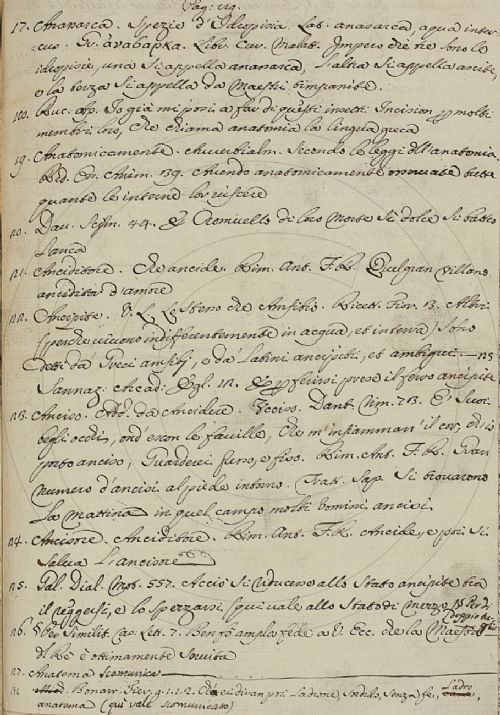 Pag. 119.
17. Anasarca. Spezie d'Idropisia. Lat. anasarca, aqua inter-
cus. Gr. Libr. Cur. Malatt. Impero che tre sono le
idropisie, una si appella anasarca, l'altra si appella ascite
e la terza si appella da Maestri timpanite.
Ruc. Ap. Io già mi posi a far di questi insetti Incision p molti
membri loro, che chiama anatomia la lingua greca
19. Anatomicamente. Avverbialm. Secondo le leggi dll'anatomia
Red. An. Anim. 139. Avendo anatomicamente tutte
quante le interne lor viscere
20. Dav. Scism. 44. E Cromuello di loro Morte sì dolce si batteo
l'anca
21. Anciditore. Che ancide. Rim. Ant. F. R. Quel gran villano
anciditor d'amore
22. Ancipite. V. L. Lo stesso che Anfibio. Ricett. Fior. 13. Altri
(perche vivono indifferentemente in acqua, et in terra) sono
detti da' Greci anfibj, e da' Latini ancipiti, et ambigui. — 25
Sannaz. Arcad. Egl. 12. E p ferirsi prese il ferro ancipite
23. Anciso. Add. da Ancidere. Ucciso. Dant. Rim. 23. E' suoi
begli occhi, ond'escon le faville, Che m'infiamman il cor, ch'io
porto anciso, Guarderei fiso, e fiso. Rim. Ant. F. R. Gran
numero d'ancisi al piede intorno. Tratt. Sap. Si trovarono
la mattina in quel campo molti uomini ancisi
24. Ancisore. Anciditore. Rim. Ant. F. R. Ancide, e poi si
salva l'ancisore
25. Gal. Dial. Mot. 557. Acciò si riducano allo stato ancipite tra
il reggersi, e lo spezzarsi (qui vale allo stato di mezzo
26. § Per Similit. Cap. Lett. 7. Ben fo ampla fede a V. Ecc. che la Maestà
di Re è ottimamente servita
27. Anatema Scomunica
Bonar. Fier. g. 1. 1. 2. Ladrone, Sordido, Senza fe,
anatema (qui vale scomunicato)